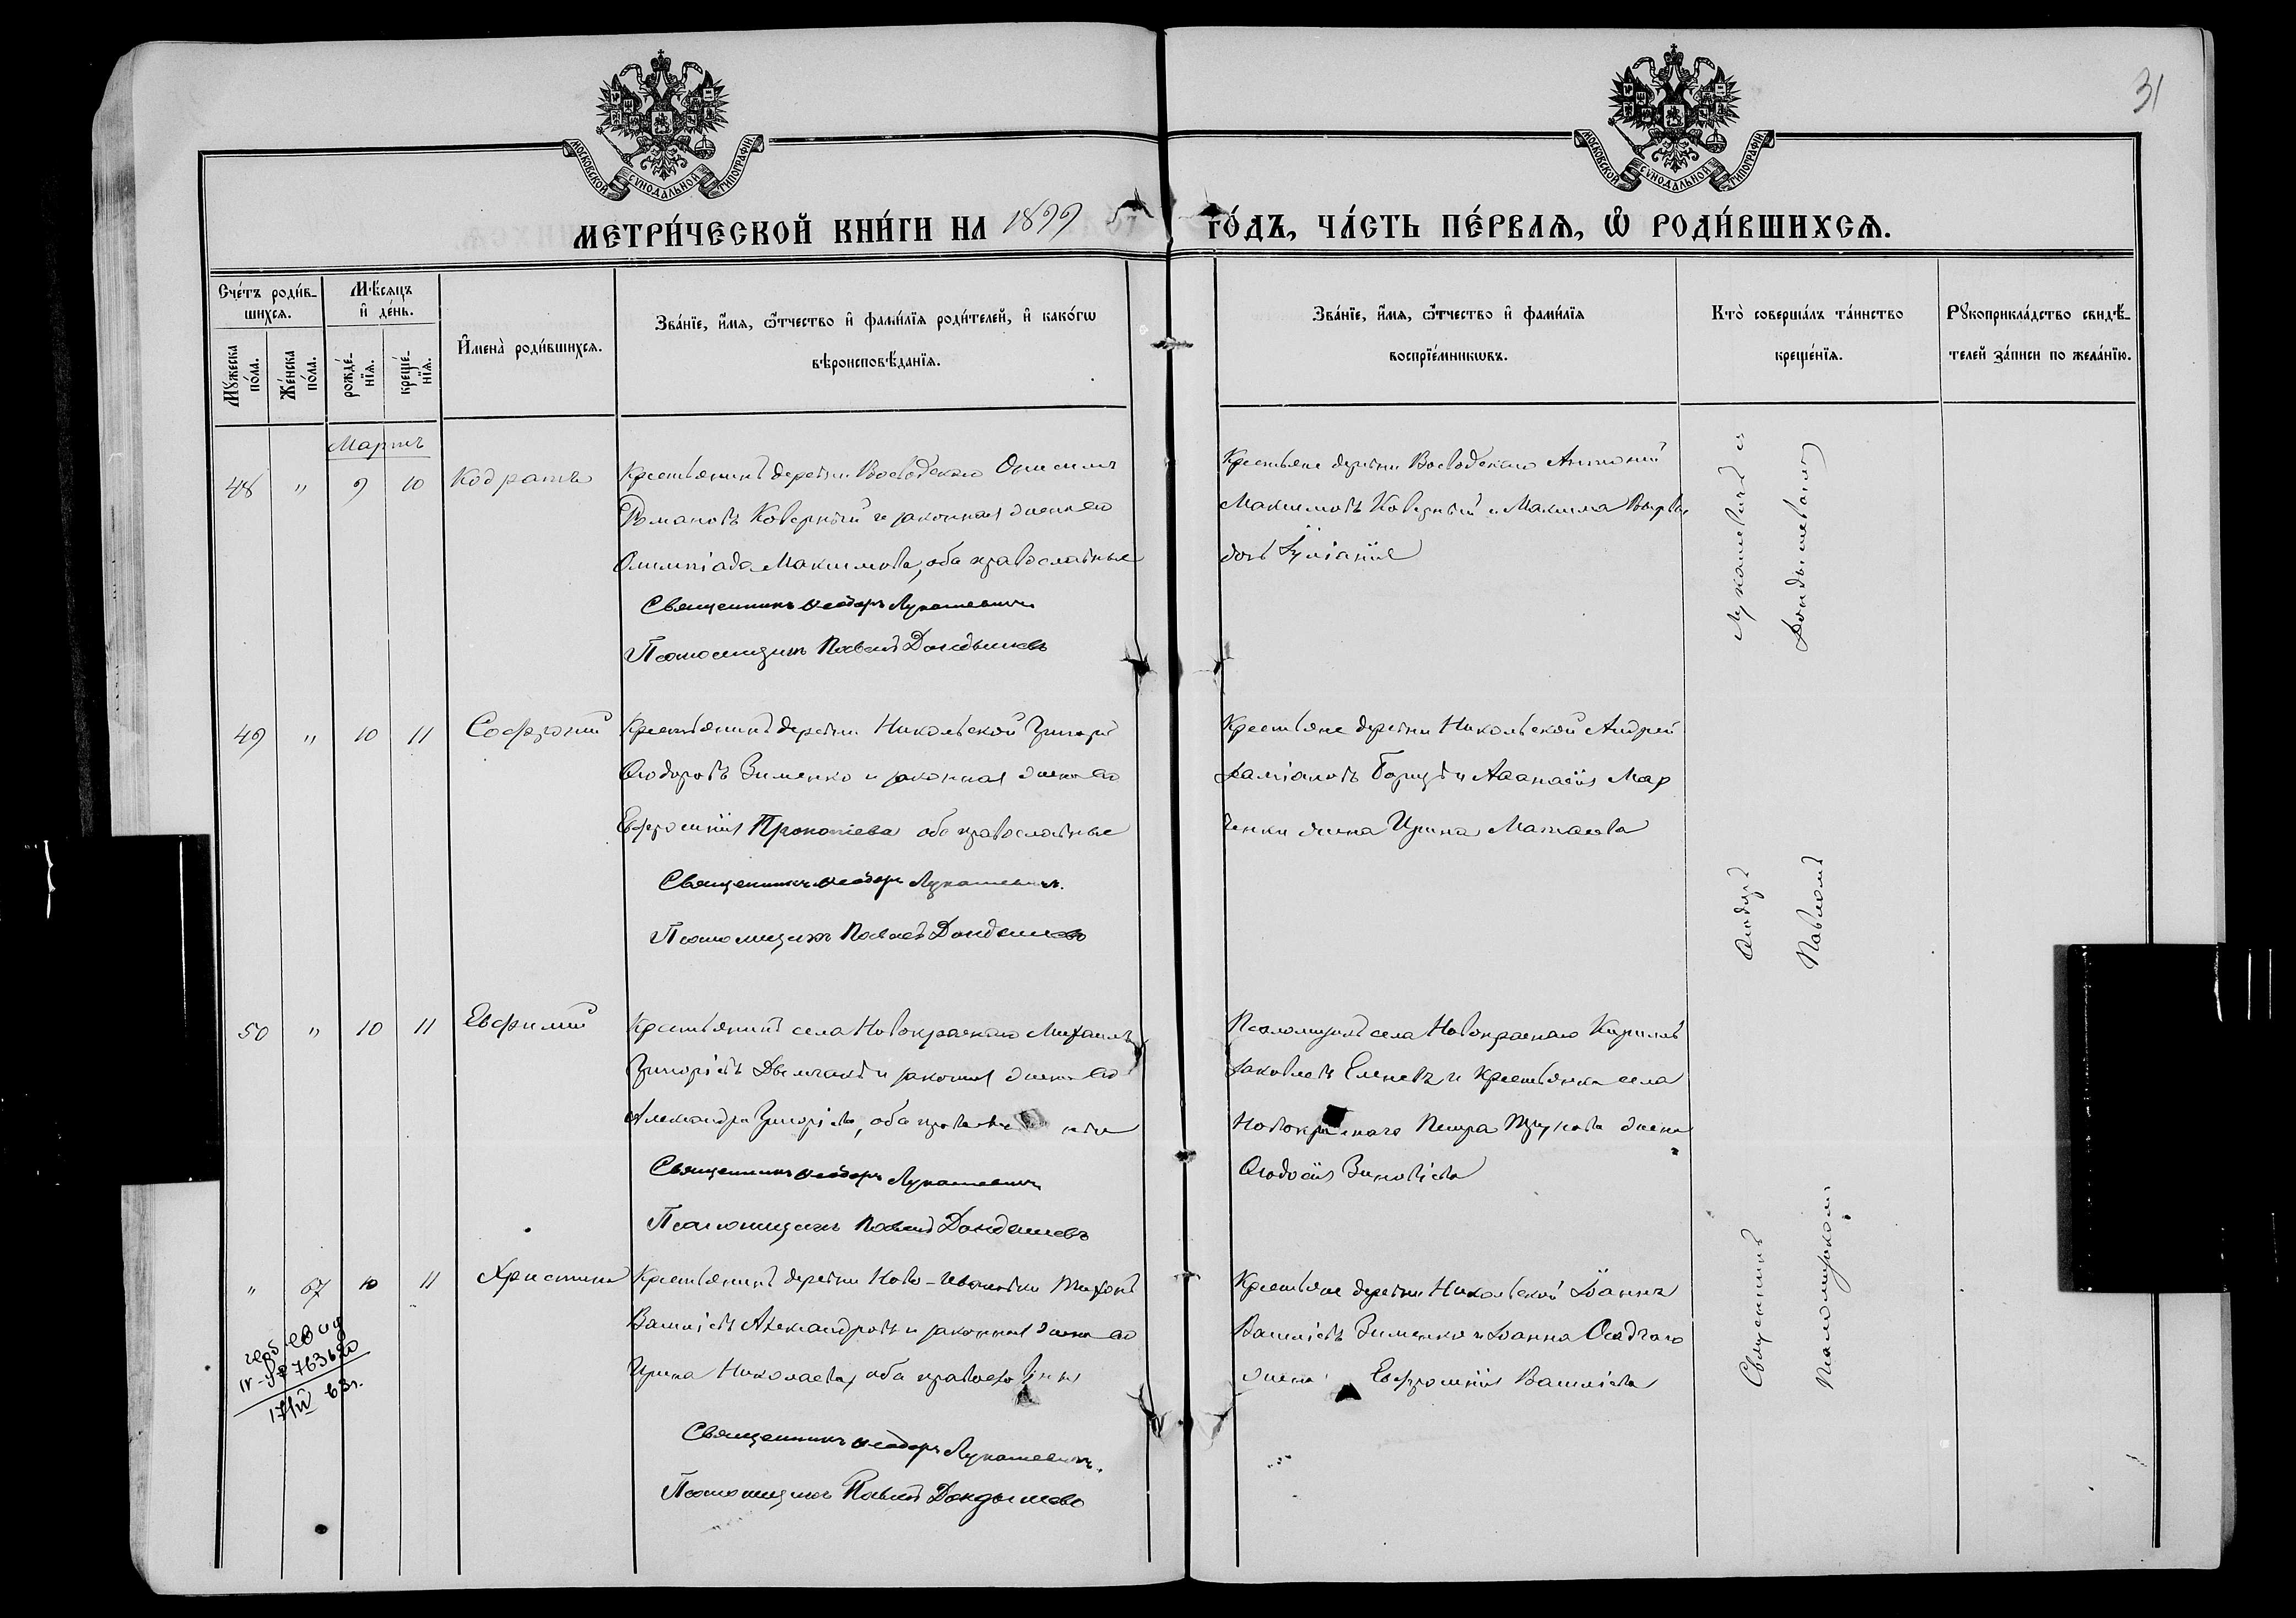 31
МОСКОВСКОЙ СѴНОДАЛЬНОЙ ТИПОГРАФІИ
МОСКОВСКОЙ СѴНОДАЛЬНОЙ ТИПОГРАФІИ
МЕТРИ́ЧЕСКОЙ КНИ́ГИ НА 1899 ГО́ДЪ, ЧА́СТЬ ПЕ́РВАЯ, Ѡ҆ РОДИ́ВШИХСЯ.
Сче́тъ роди́в-
шихся.
Му́жеска по́ла.
Же́нска по́ла.
Мѣ́сяцъ
и҆ де́нь.
рожде́-
нїя.
креще́-
нїя.
И҆мена̀ роди́вшихся.
Зва́нїе, и҆́мя, ѻ҆́тчество и҆ фами́лїя роди́телей, и҆ како́гѡ
вѣроисповѣ́данїя.
Зва́нїе, и҆́мя, ѻ҆́тчество и҆ фами́лїя
воспрїе́мникѡвъ.
Кто̀ соверша́лъ та́инство
креще́нїя.
Рꙋкоприкла́дство свидѣ́-
телей за́писи по жела́нїю.
Мартъ
48 " 9 10 Кодратъ
Крестьянинъ деревни Воеводскаго Онисимъ
Романовъ Коверный и законная жена его
Олимпіада Максимова, оба православные
Священникъ Ѳеодоръ Лукашевичъ
Псаломщикъ Павелъ Дондышевъ
Крестьяне деревни Воеводскаго Антоній
Максимовъ Коверный и Максима
дочь Іуліанія
49 " 10 11 Софроній
Крестьянинъ деревни Никольской Григорій
Ѳеодоровъ Зименко и законная жена его
Евфросинія Прокопіева оба православные
Священникъ Ѳеодоръ Лукашевичъ.
Псаломщикъ Павелъ Дондышевъ
Крестьяне деревни Никольской Андрей
Даміановъ и Аѳанасія Мар
ченки жена Ирина Матѳаева
50 " 10 11 Евфимій
Крестьянинъ села Новокраснаго Михаилъ
Григоріевъ и законная жена его
Александра Григоріева, оба
Священникъ Ѳеодоръ Лукашевичъ
Псаломщикъ Павелъ Дондышевъ
Псаломщикъ села Новокраснаго Кириллъ
Іаковлевъ Еленевъ и крестьянка села
Новокраснаго Петра жена
Ѳеодосія Зиновіева
" 67 10 11 Христина
Крестьянинъ деревни Ново- Тихонъ
Василіевъ Александровъ и законная жена его
Ирина Николаева, оба православные
Священникъ Ѳеодоръ Лукашевичъ.
Псаломщикъ Павелъ Дондышевъ
Крестьяне деревни Никольской Іоаннъ
Василіевъ Зименко и Іоанна Осадчаго
жена Евфросинія Василіева
Священникъ Ѳеодоръ Лукашевичъ и
Псаломщикомъ Павломъ Дондышевымъ
17/IV 63 г.